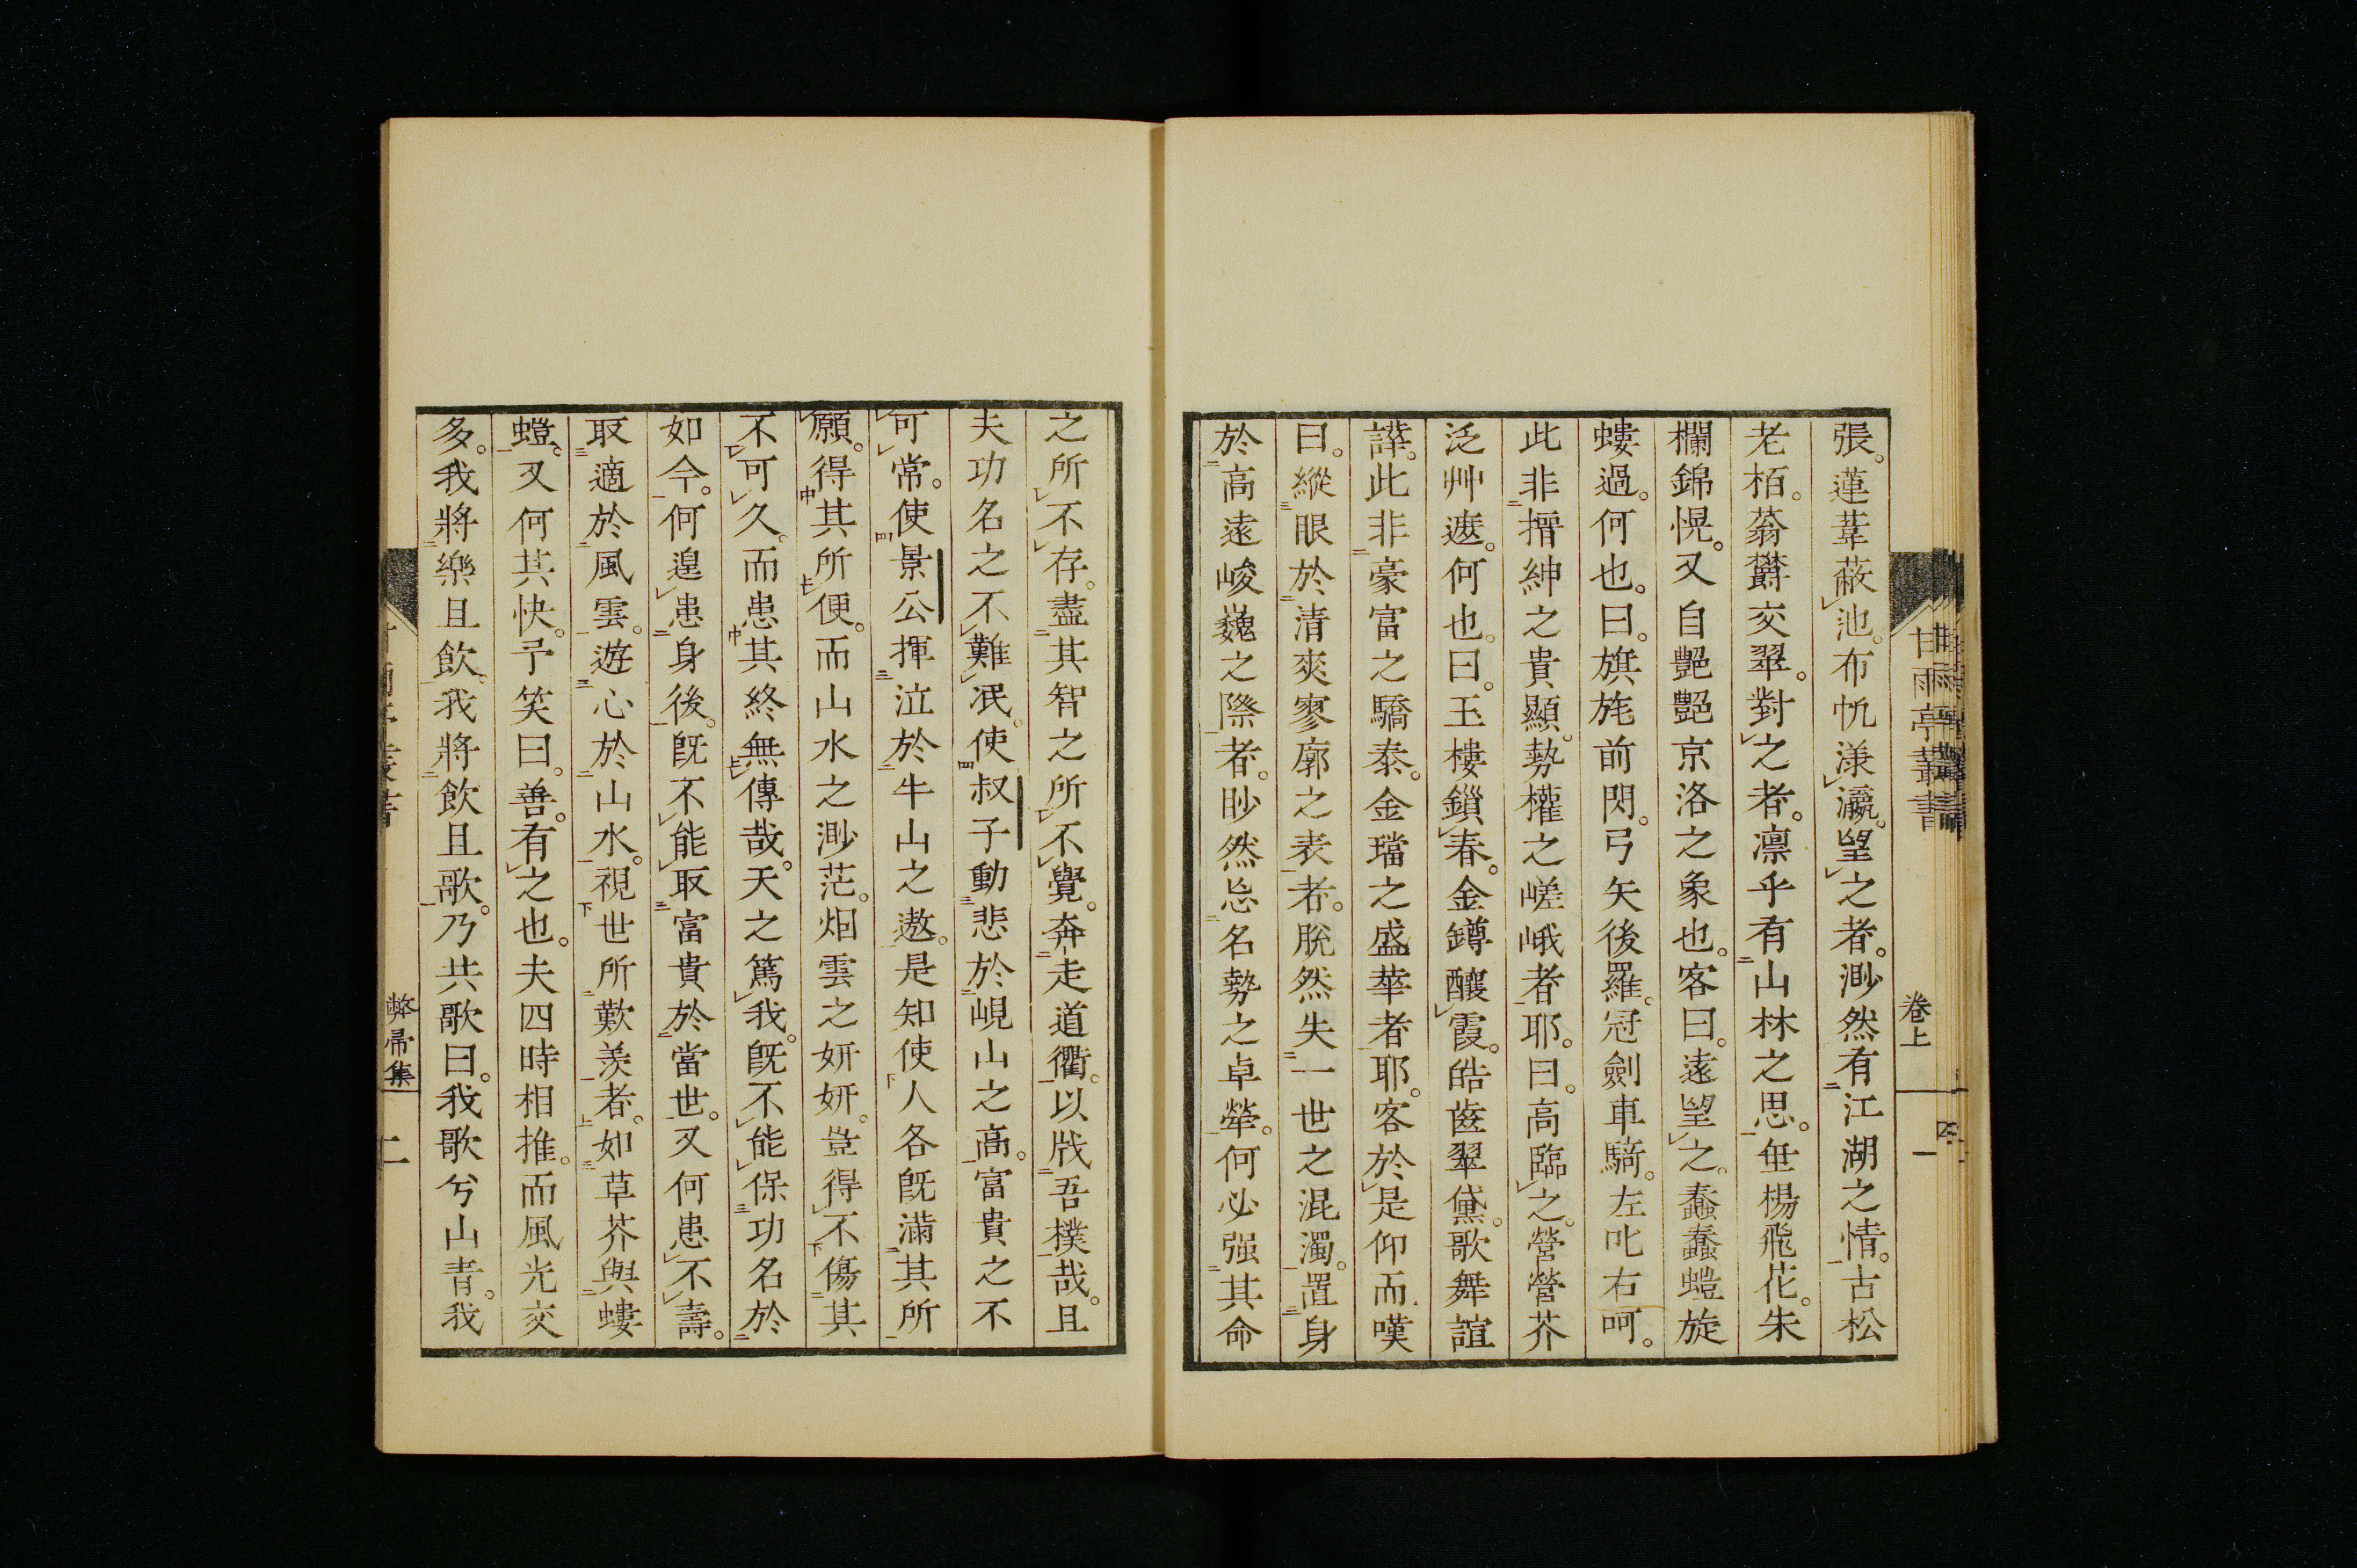 張。蓮葦蔽池。布帆漾瀛。望之者。渺然有江湖之情。古松
老栢。蓊欝交翠。對之者。凛乎有山林之思。垂楊飛花。朱
欄錦幌。又自艷艷京洛之象也。客曰。遠望之。蠢蠢螘旋
螻過。何也。曰。旗旄前閃。弓矢後羅。冠劍車騎。左叱右呵。
此非搢紳之貴顯。勢權之嵯峨者耶。曰。高臨之。營營芥
泛艸遊。何也。曰。玉樓鎖春。金罇釀霞。皓齒翠黛。歌舞誼
譁。此非豪富之驕泰。金璫之盛華者耶。客於是仰而嘆
曰。縱眼於清爽寥廓之表者。脫然失一世之混濁。置身
於高遠峻巍之際者。眇然忘名勢之卓犖。何必强其命
甘雨亭叢書
卷上
一
之所不存。盡其智之所不覺。奔走道衢。以戕吾樸哉。且
夫功名之不難泯。使叔子動悲於峴山之高。富貴之不
可常。使景公揮泣於牛山之遨。是知使人各旣滿其所
願。得其所便。而山水之渺茫。烟雲之妍妍。豈得不傷其
不可久。而患其終無傳哉。天之篤我。旣不能保功名於
如今。何遑患身後。旣不能取富貴於當世。又何患不壽。
取適於風雲。遊心於山水。視世所歎羨者。如草芥與螻
螘。又何其快。予笑曰。善。有之也。夫四時相推。而風光交
多。我將樂且飲。我將飲且歌。乃共歌曰。我歌兮山青。我
弊帚集
二